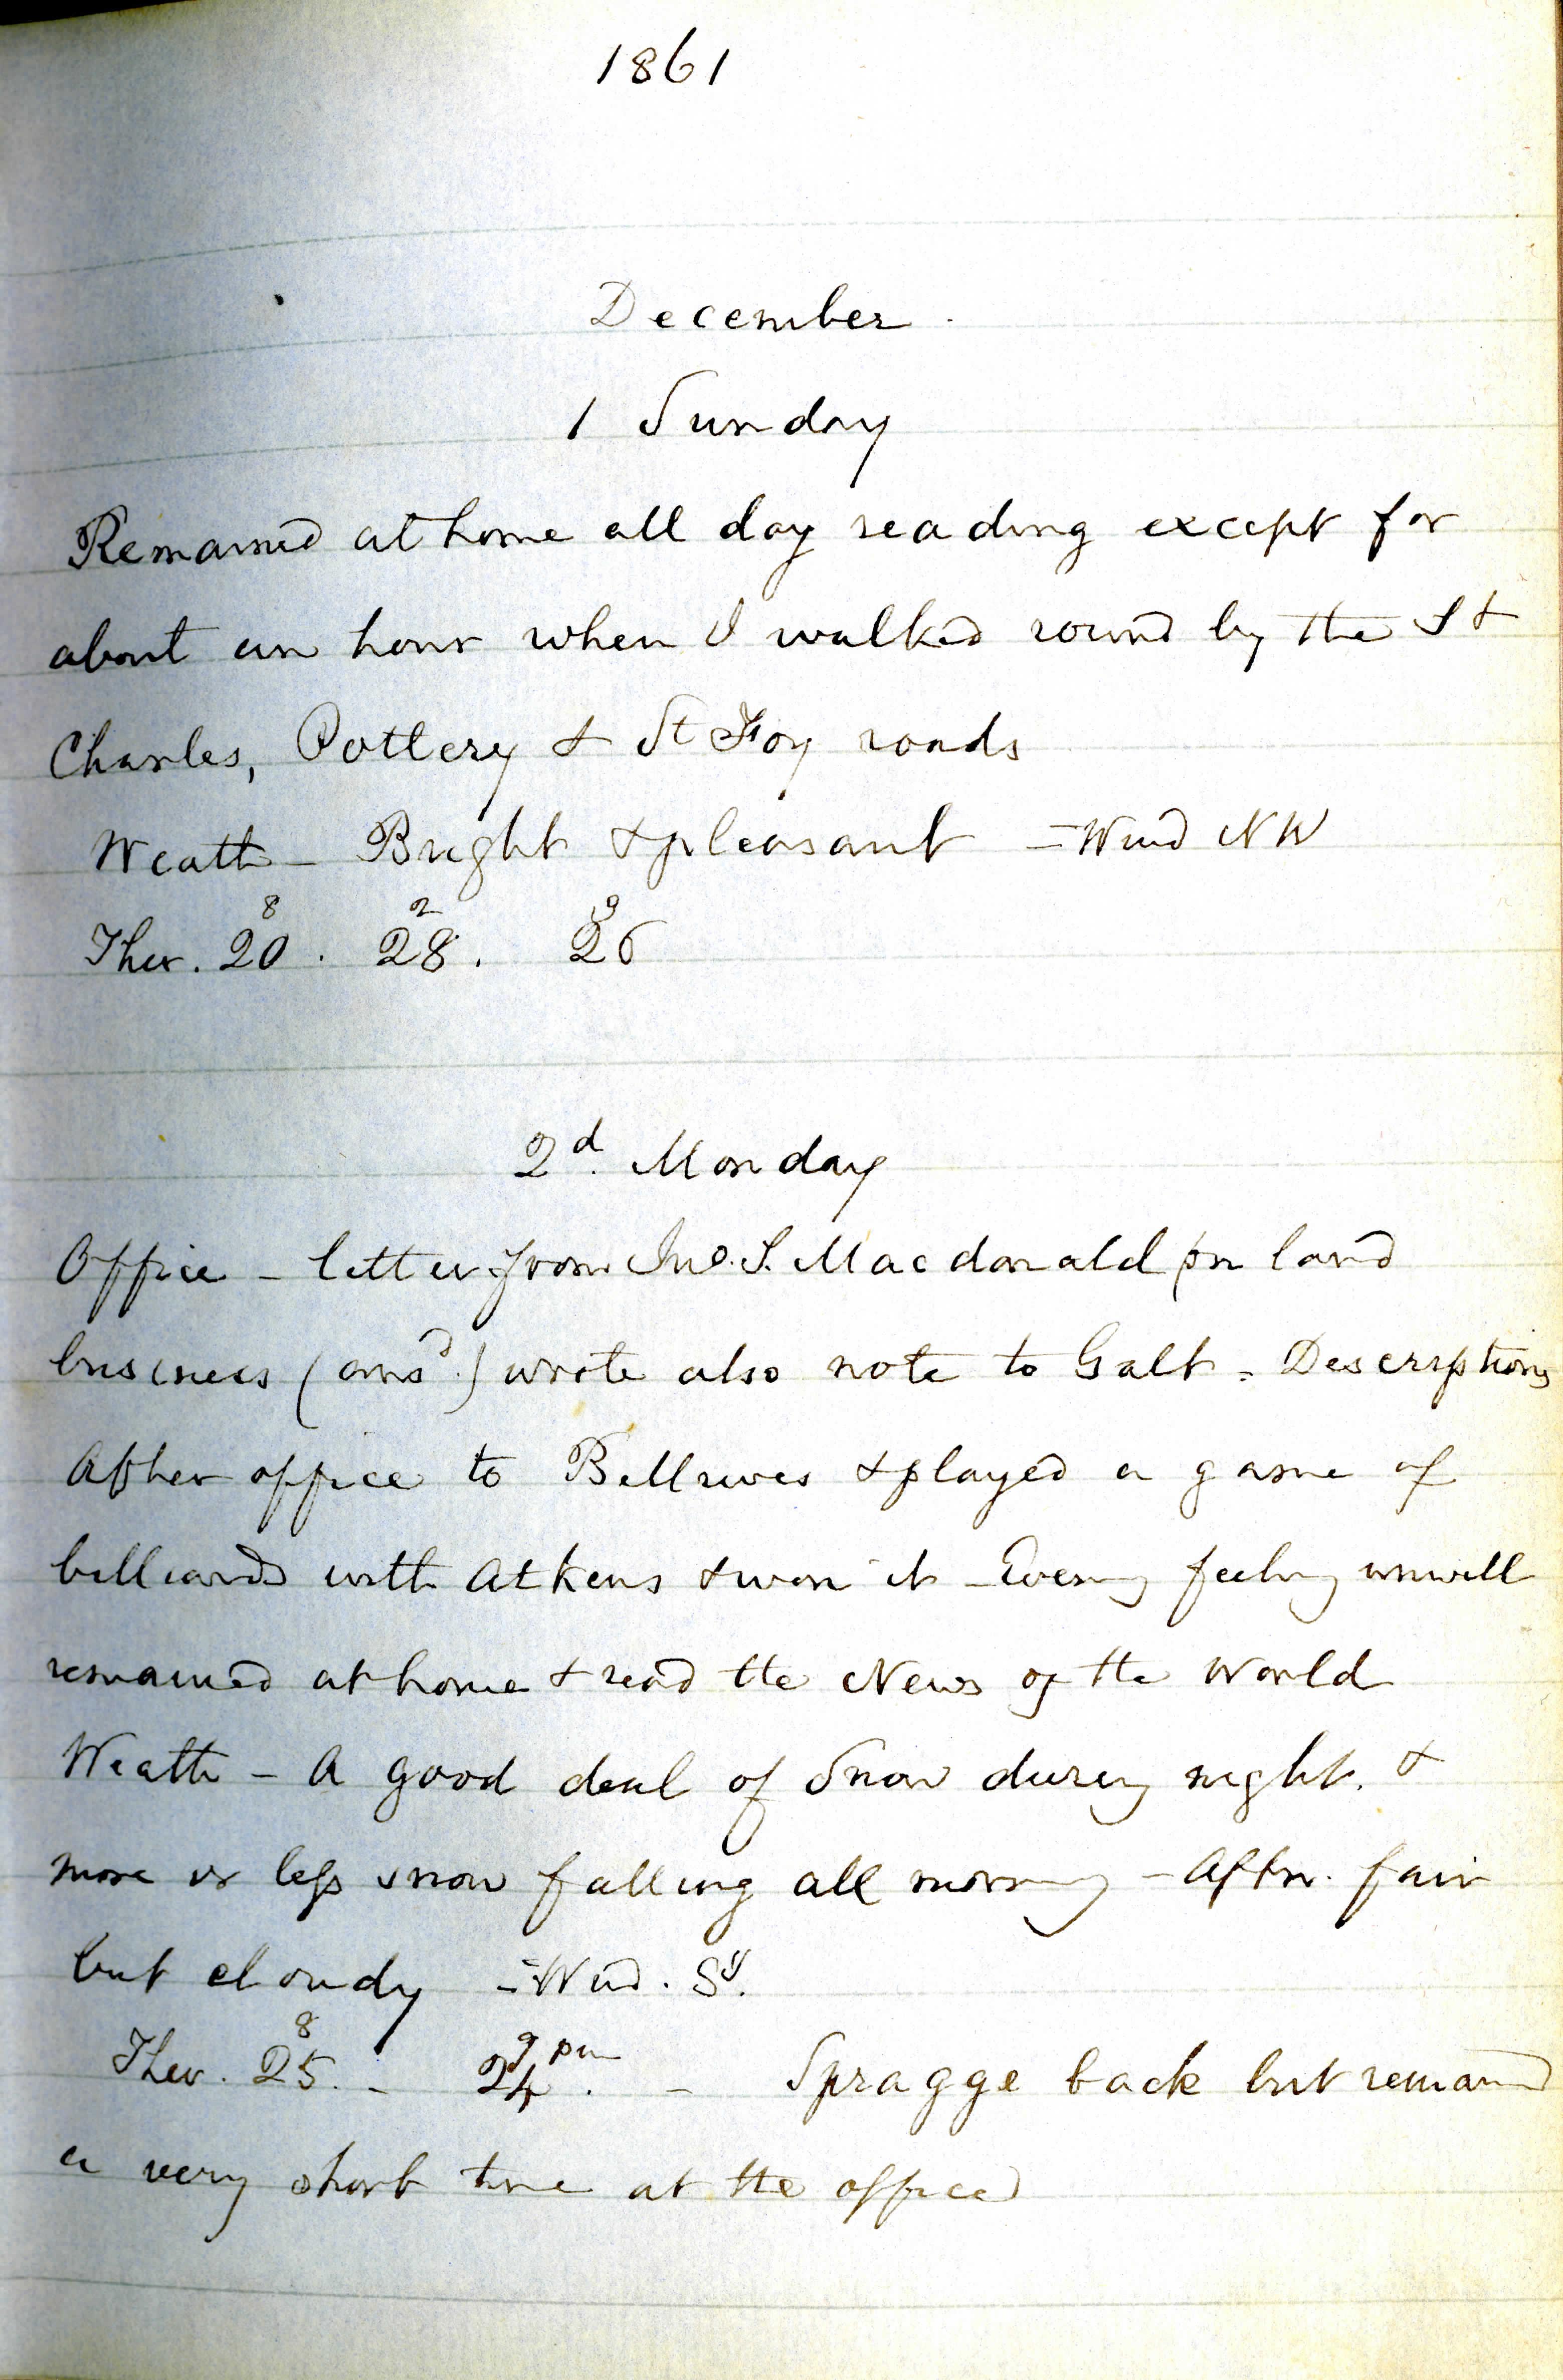 1861
December.
1 Sunday
Remained at home all day reading except for
about an hour when I walked round by the St
Charles, Pottery & St Foy roads
Weath - Bright & pleasant = Wind NW
8 2 9
Ther. 20. 28. 26
2d. Monday
Office - letter from Jno. S. Macdonald on land
business (ansd.) wrote also note to Galt = Descriptions
After office to & played a game of
billiards with Atkens & won it - Evening feeling unwell
remained at home & read the News of the World
Weath - A good deal of Snow during night. &
more or less snow falling all morning - Aftn. fair
but cloudy = Wind. Sy.
8 9 pm
Ther. 25. - 24. - Spragge back but remained
a very short time at the office